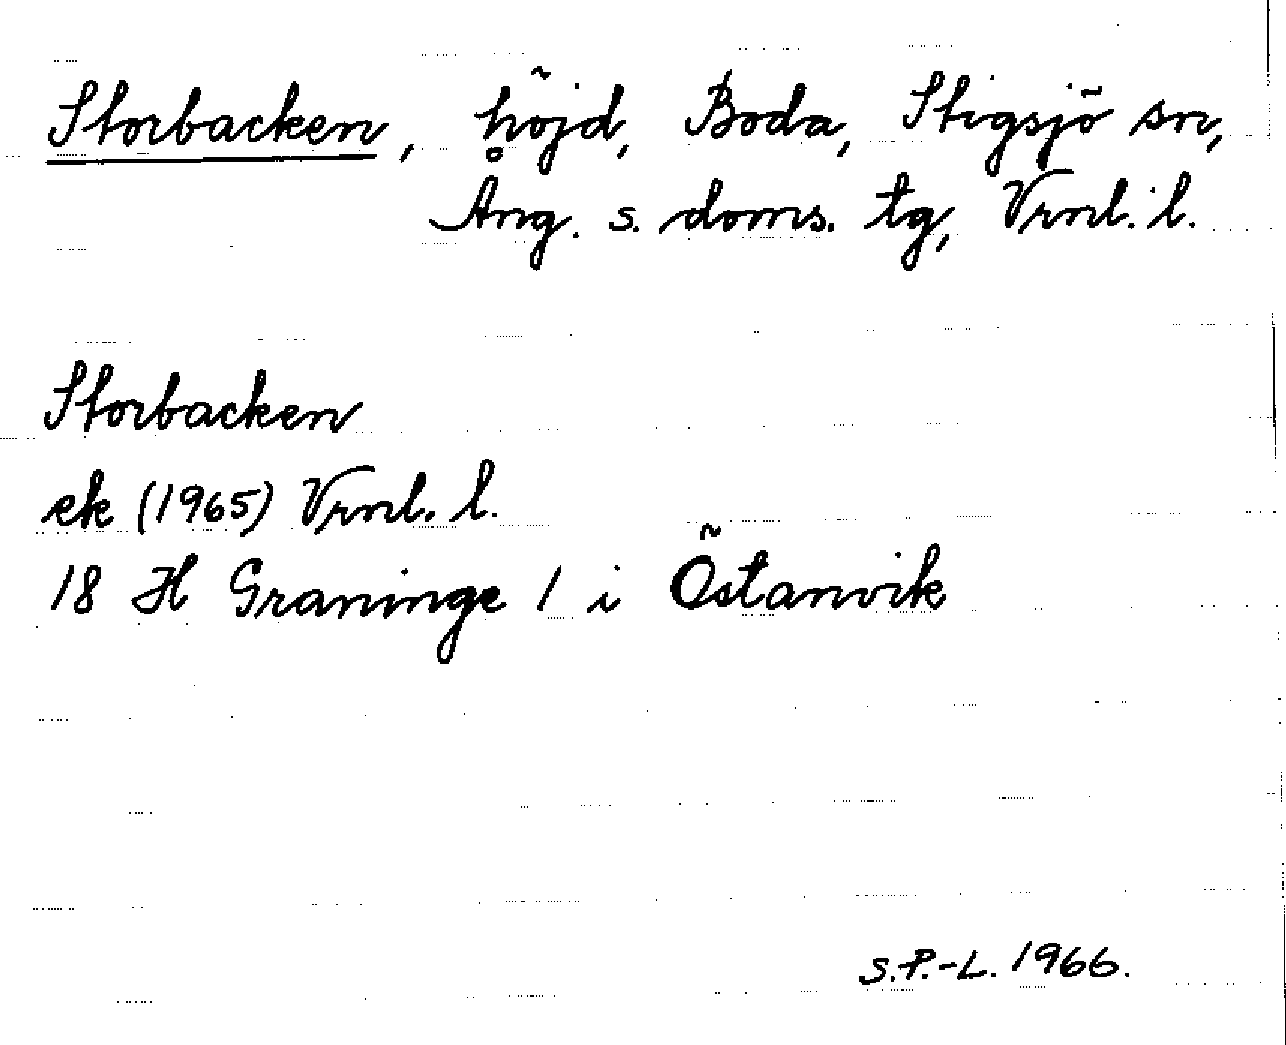 Storbacken, höjd, Boda, Stigsjö sn,
Ång. s. doms. tg, Vrnl. l.
Storbacken
ek (1965) Vrnl. l.
18 H Graninge 1 i Östanvik
S.P.-L. 1966.